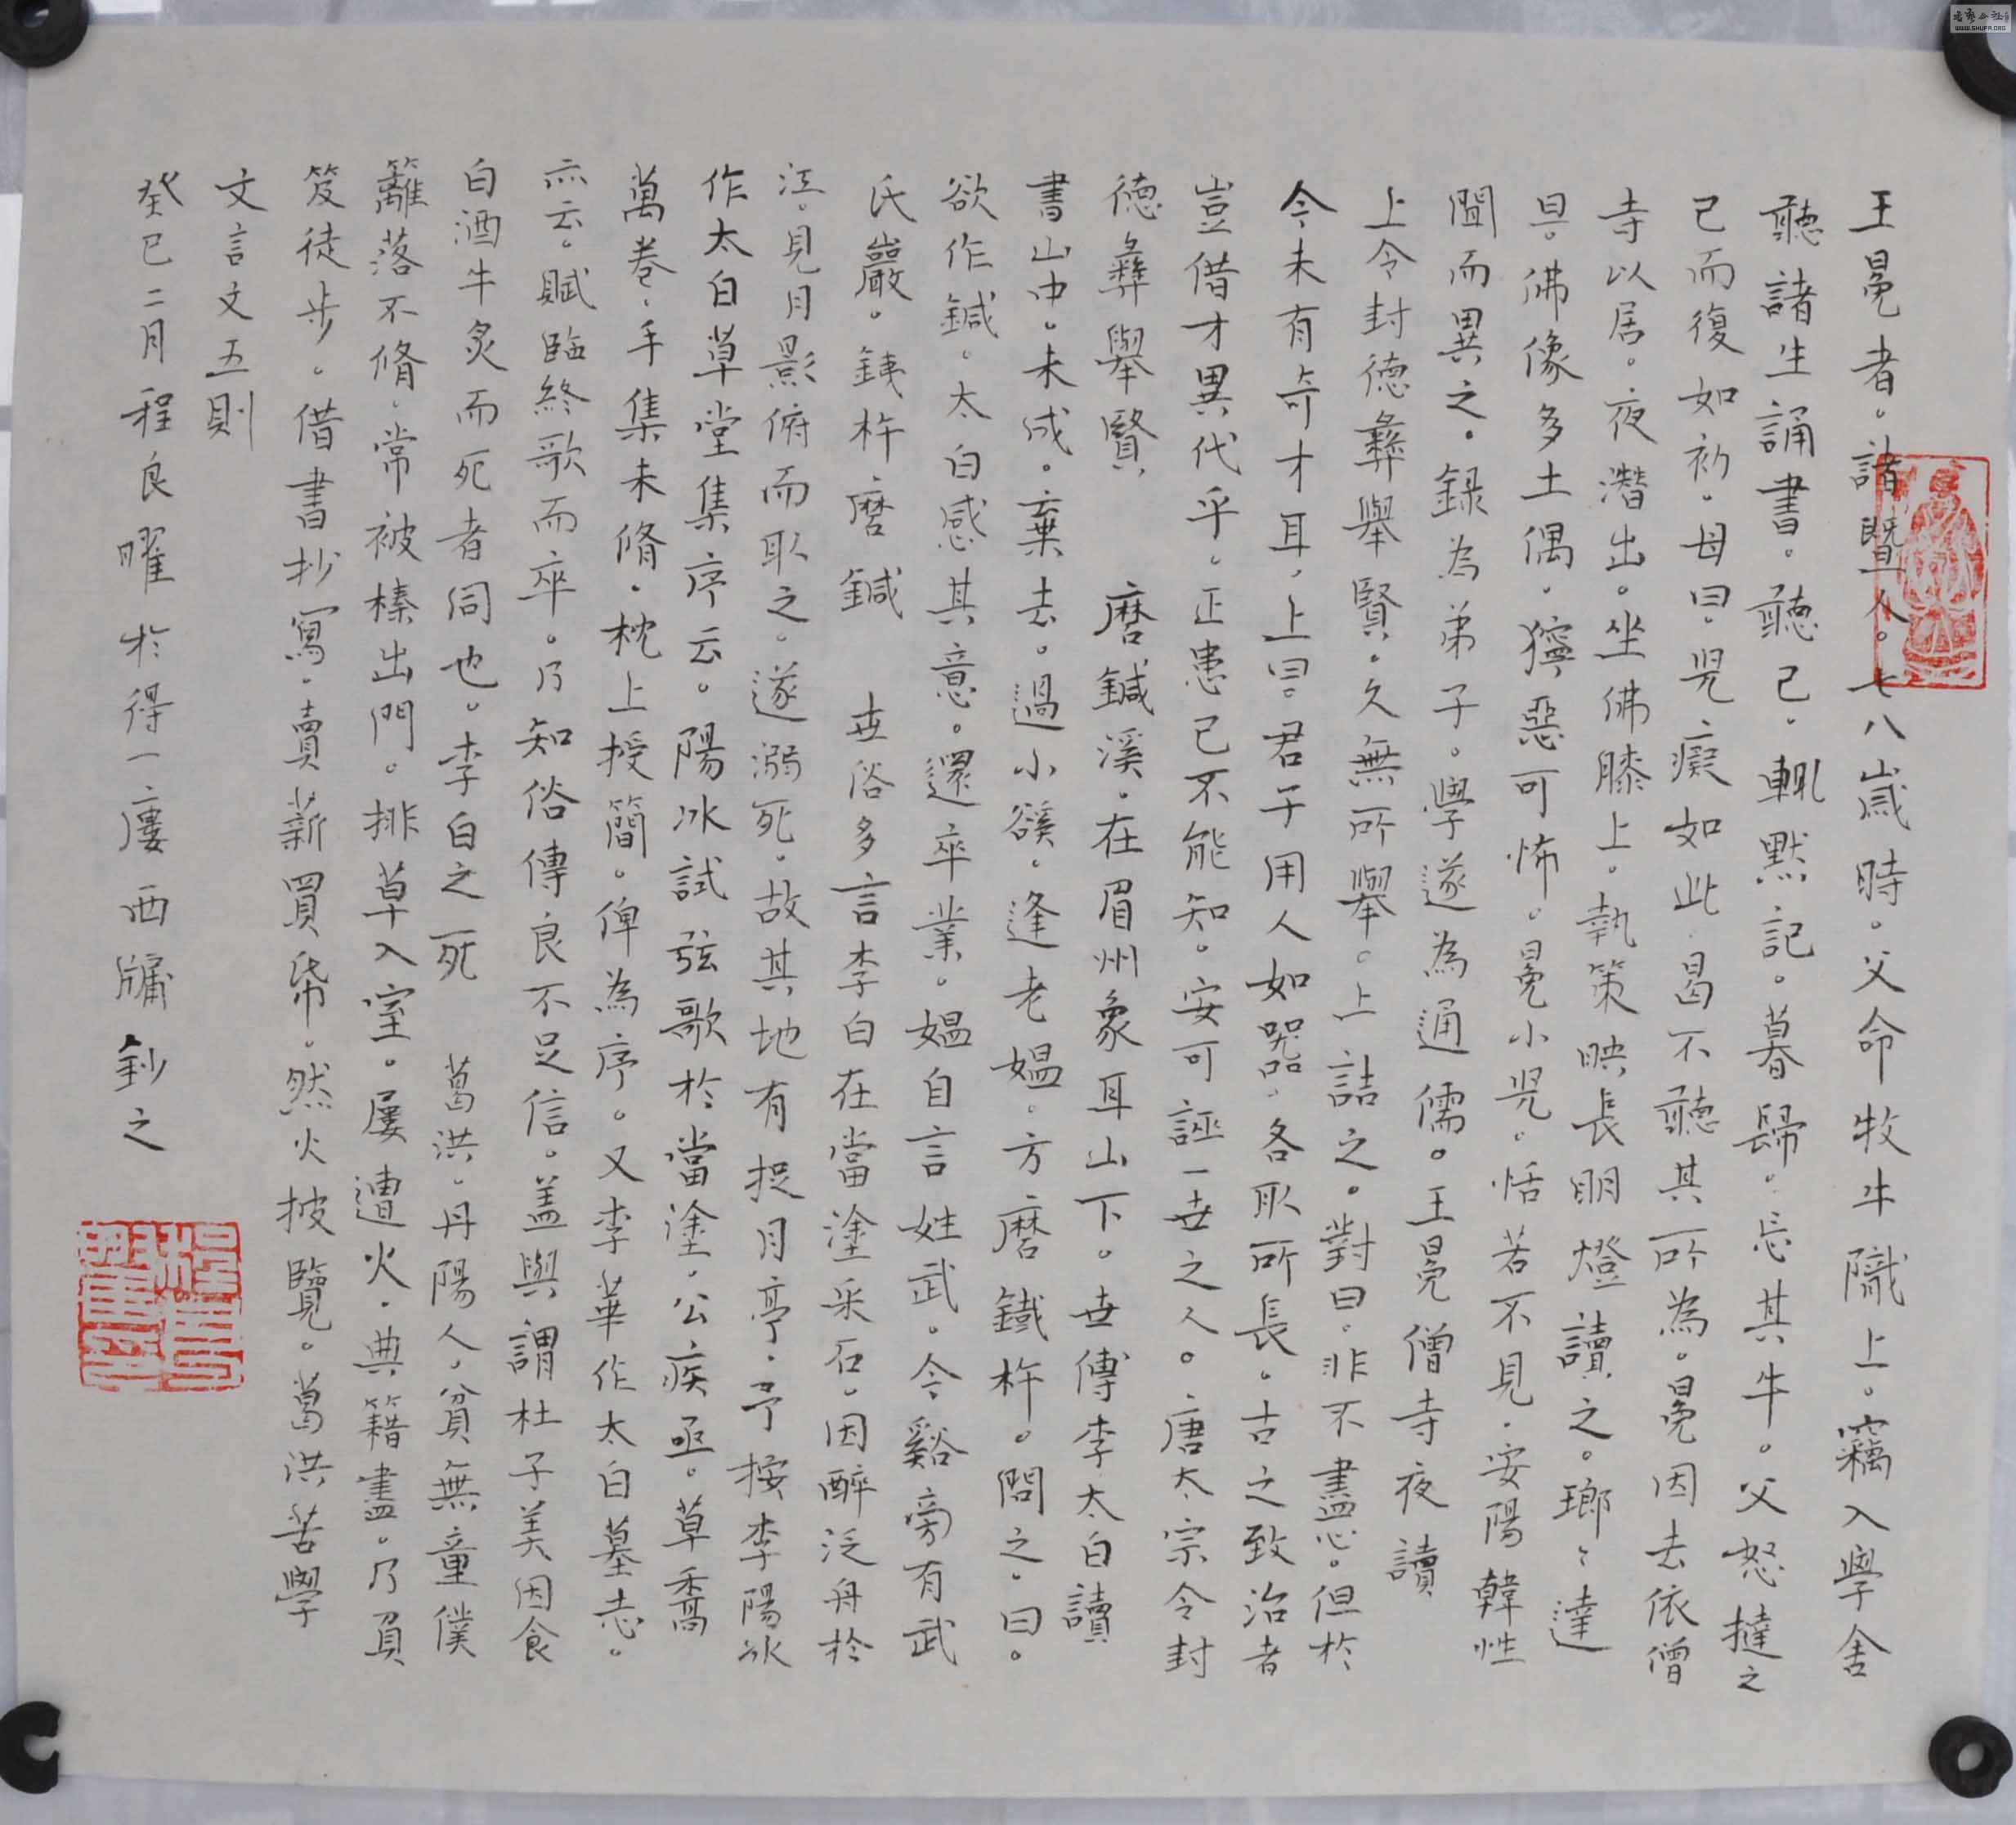 王冕者。諸暨人。七八歲時。父命牧牛隴上。竊入學舍
聽諸生誦書。聽已。輒默記。暮歸。忘其牛。父怒撻之
已而復如初。母曰。兒癡如此。曷不聽其所為。冕因去依僧
寺以居。夜潛出。坐佛膝上。執策映長明燈讀之。瑯々達
旦。佛像多土偶。獰惡可怖。冕小兒。恬若不見。安陽韓性
聞而異之。録為弟子。學遂為通儒。王冕僧寺夜讀
上令封德彝舉賢。久無所舉。上詰之。對曰。非不盡心。但於
今未有奇才耳。上曰。君子用人如器。各取所長。古之致治者
豈借才異代乎。正患己不能知。安可誣一世之人。唐太宗令封
德彝舉賢 磨鍼溪。在眉州象耳山下。世傳李太白讀
書山中。未成。棄去。過小谿。逢老媼。方磨鐵杵。問之。曰。
欲作鍼。太白感其意。還卒業。媼自言姓武。今谿旁有武
氏巖。銕杵磨鍼 世俗多言李白在當塗采石。因醉泛舟於
江。見月影俯而取之。遂溺死。故其地有捉月亭。予按李陽冰
作太白草堂集序云。陽冰試弦歌於當塗。公疾亟。草稾
萬卷。手集未脩。枕上授簡。俾為序。又李華作太白墓志。
亦云。賦臨終歌而卒。乃知俗傳良不足信。盖與謂杜子美因食
白酒牛炙而死者同也。李白之死 葛洪。丹陽人。貧無童僕
籬落不脩。常被榛出門。排草入室。屢遭火。典籍盡。乃負
笈徒步。借書抄寫。賣薪買帋。然火披覽。葛洪苦學
文言文五則
癸巳二月程良曜於得一廔西牖鈔之
WWW.SHUFA.ORG